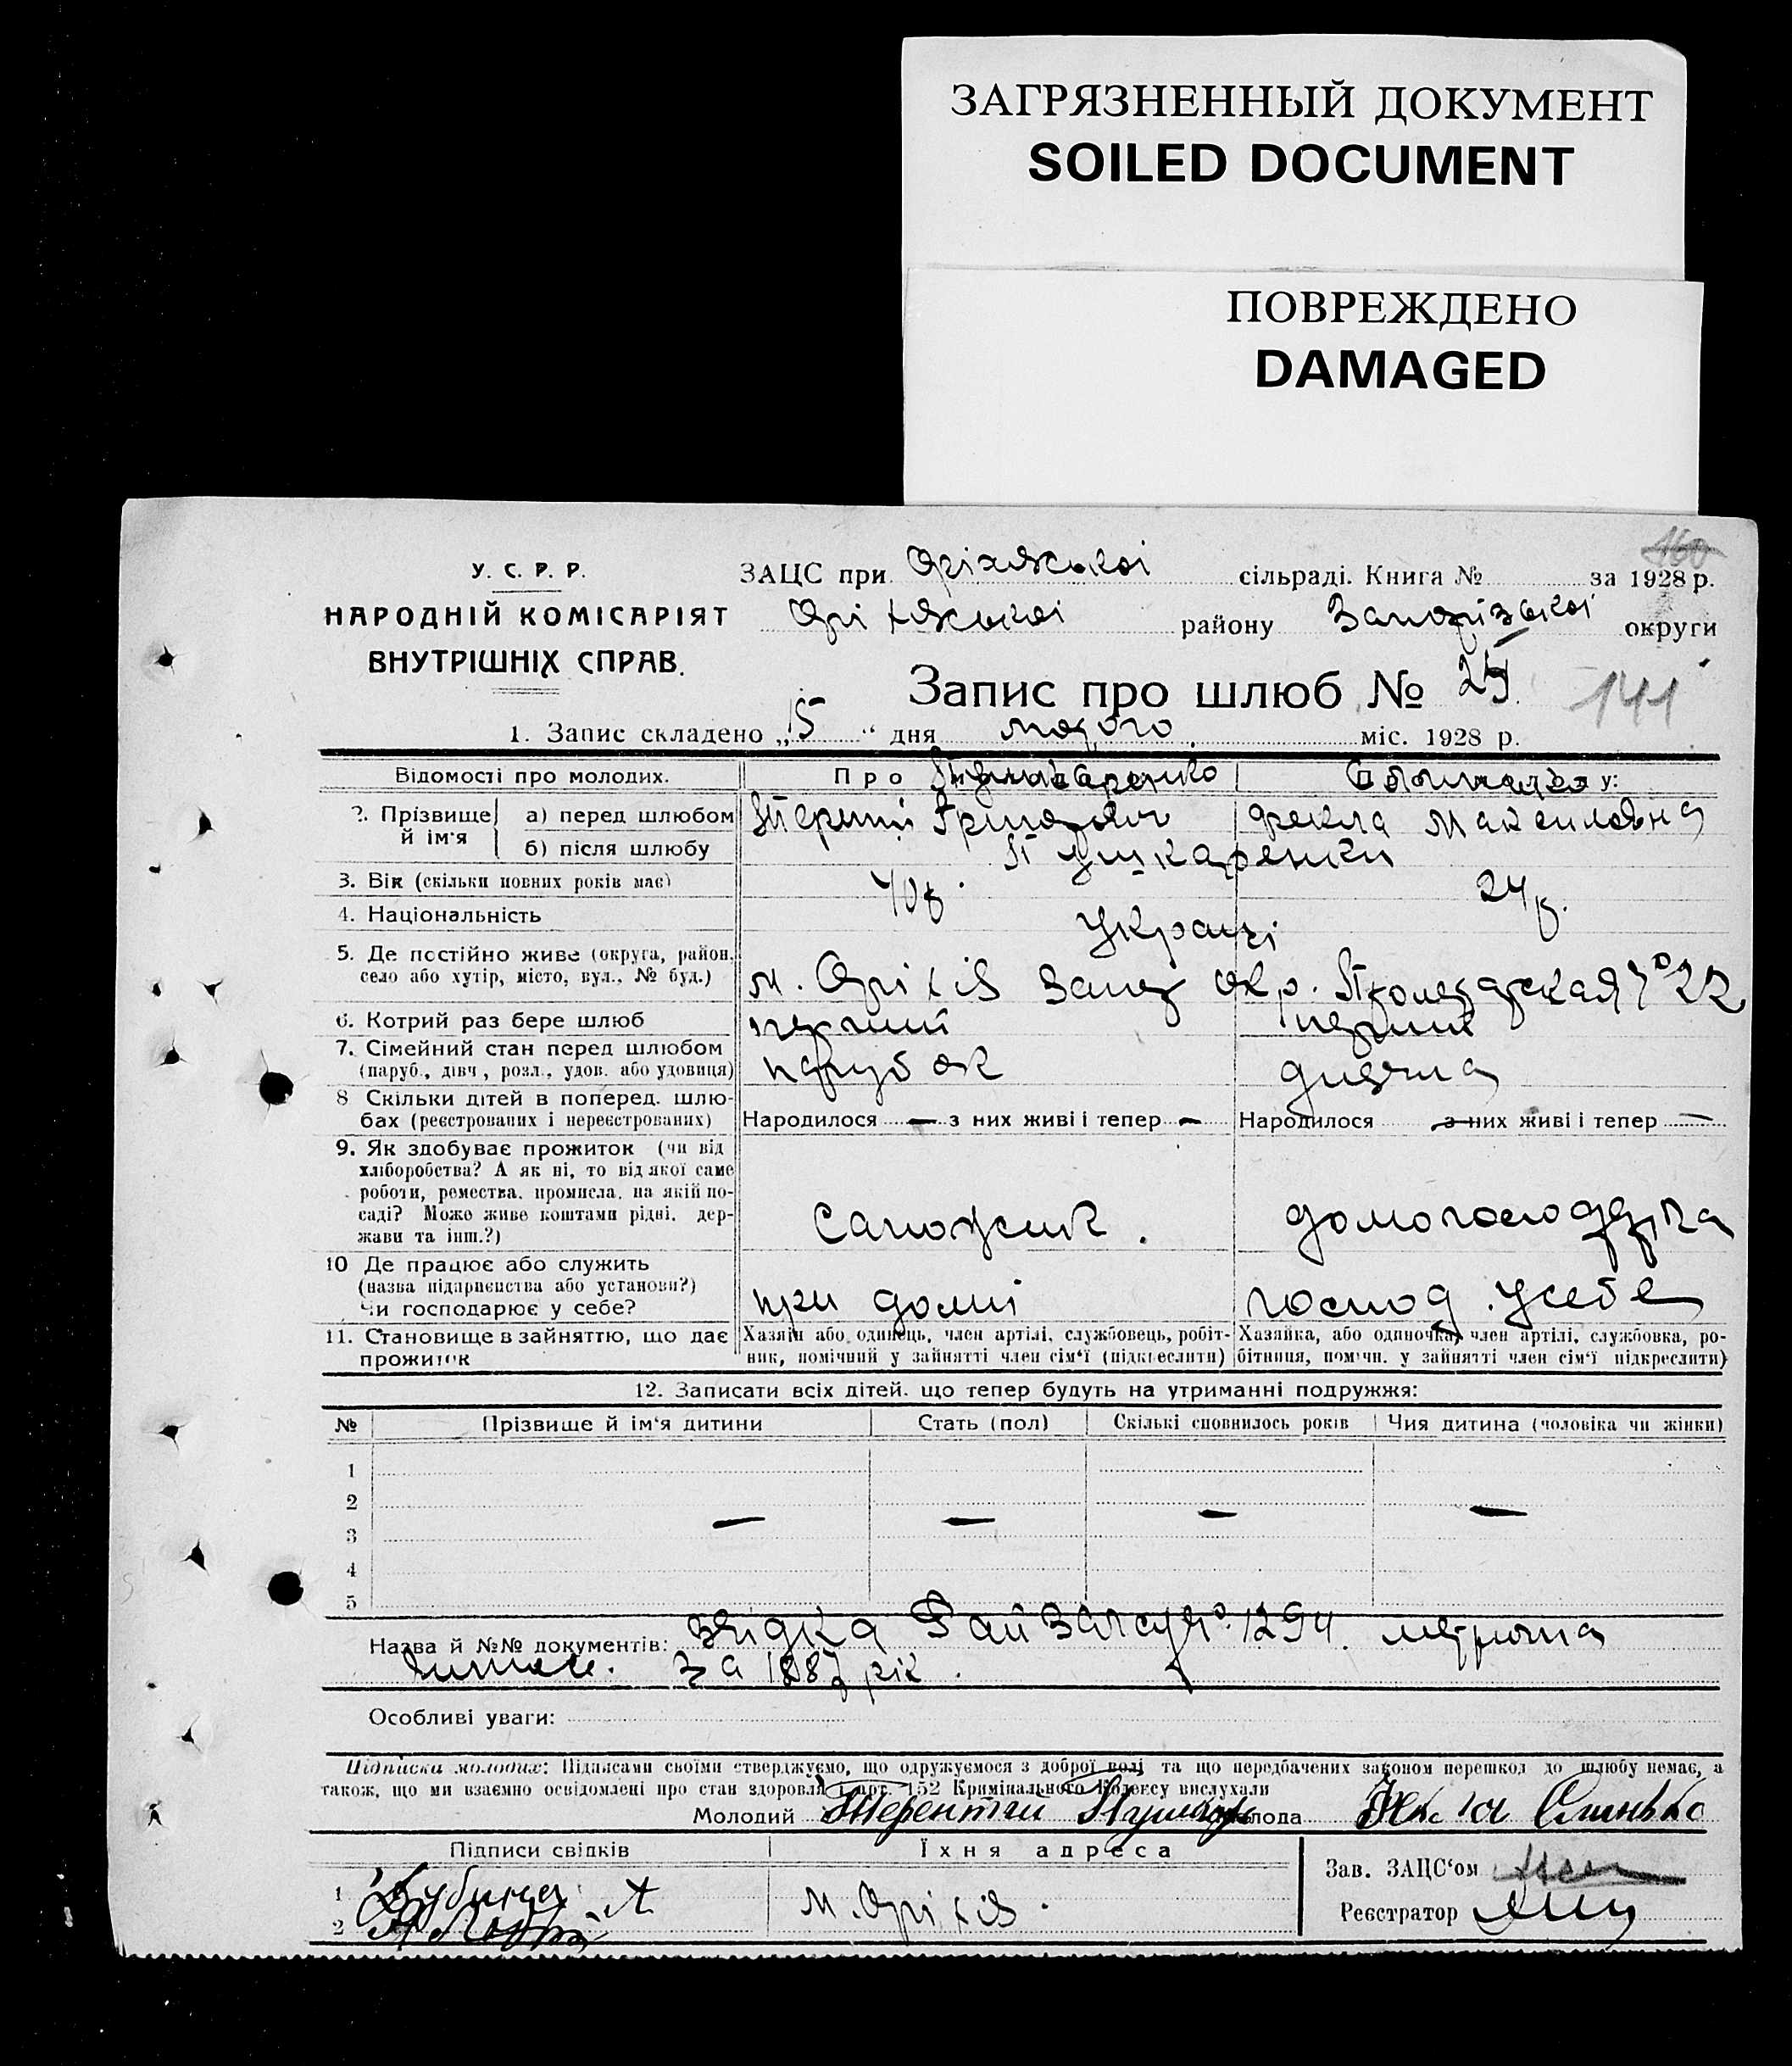 ЗАГРЯЗНЕННЫЙ ДОКУМЕНТ
SOILED DOCUMENT
ПОВРЕЖДЕНО
DAMAGED
160
У. С. Р. Р.
НАРОДНІЙ КОМІСАРІЯТ
ВНУТРІШНІХ СПРАВ.
ЗАЦС при Оріхівської сільраді. Книга № за 1928 р.
Оріхівської району Запорізької округи
Запис про шлюб №
141
1. Запис складено „15“ дня лютого міс. 1928 р.
Відомості про молодих.
Про Пушкаренко
у:
2. Прізвище й ім'я
а) перед шлюбом
Терентій Григорович
Фекла Максимовна
б) після шлюбу
Пушкаренки
3. Вік (скільки повних років має)
40 р.
24 р.
4. Національність
Українці
5. Де постійно живе (округа, район, село або хутір, місто, вул., № буд.)
м. Оріхів Запор окр. Пролетарская № 22
6. Котрий раз бере шлюб
перший
перший
7. Сімейний стан перед шлюбом (паруб., дівч., розл., удов. або удовиця)
парубок
дивчина
8 Скільки дітей в поперед. шлюбах (реєстрованих і нереєстрованих)
Народилося — з них живі і тепер —
Народилося з них живі і тепер —
9. Як здобуває прожиток (чи від хліборобства? А як ні, то від якої саме роботи, ремества, промисла, на якій посаді? Може живе коштами рідні, держави та інш.?)
Сапожник.
домогосподарка
10 Де працює або служить (назва підприєиства або установи?) Чи господарює у себе?
при домі
господ. у себе
11. Становище в зайняттю, що дає прожиток
Хазяїн або одинець, член артілі, службовець, робітник, помічний у зайнятті член сім'ї (підкреслити)
Хазяйка, або одиночка, член артілі, службовка, робітниця, помічн. у зайнятті член сім'ї підкреслити)
12. Записати всіх дітей, що тепер будуть на утриманні подружжя:
№ Прізвище й ім'я дитини Стать (пол) Скількі сповнилось років Чия дитина (чоловіка чи жінки)
1
2
— — — —
3
4
5
Назва й №№ документів: звідка Рай № 1294. метрика
за 1887 рік.
Особливі уваги:
Підписка молодих: Підписами своїми стверджуємо, що одружуємося з доброї волі та що передбачених законом перешкод до шлюбу немає, а
також, що ми взаємно освідомлені про стан здоровля і арт. 152 Кримінального Кодексу вислухали
Молодий Терентий Пушкар Молода
Підписи свідків
Їхня адреса
Зав. ЗАЦС'ом
1
2
м. Оріхів.
Реєстратор